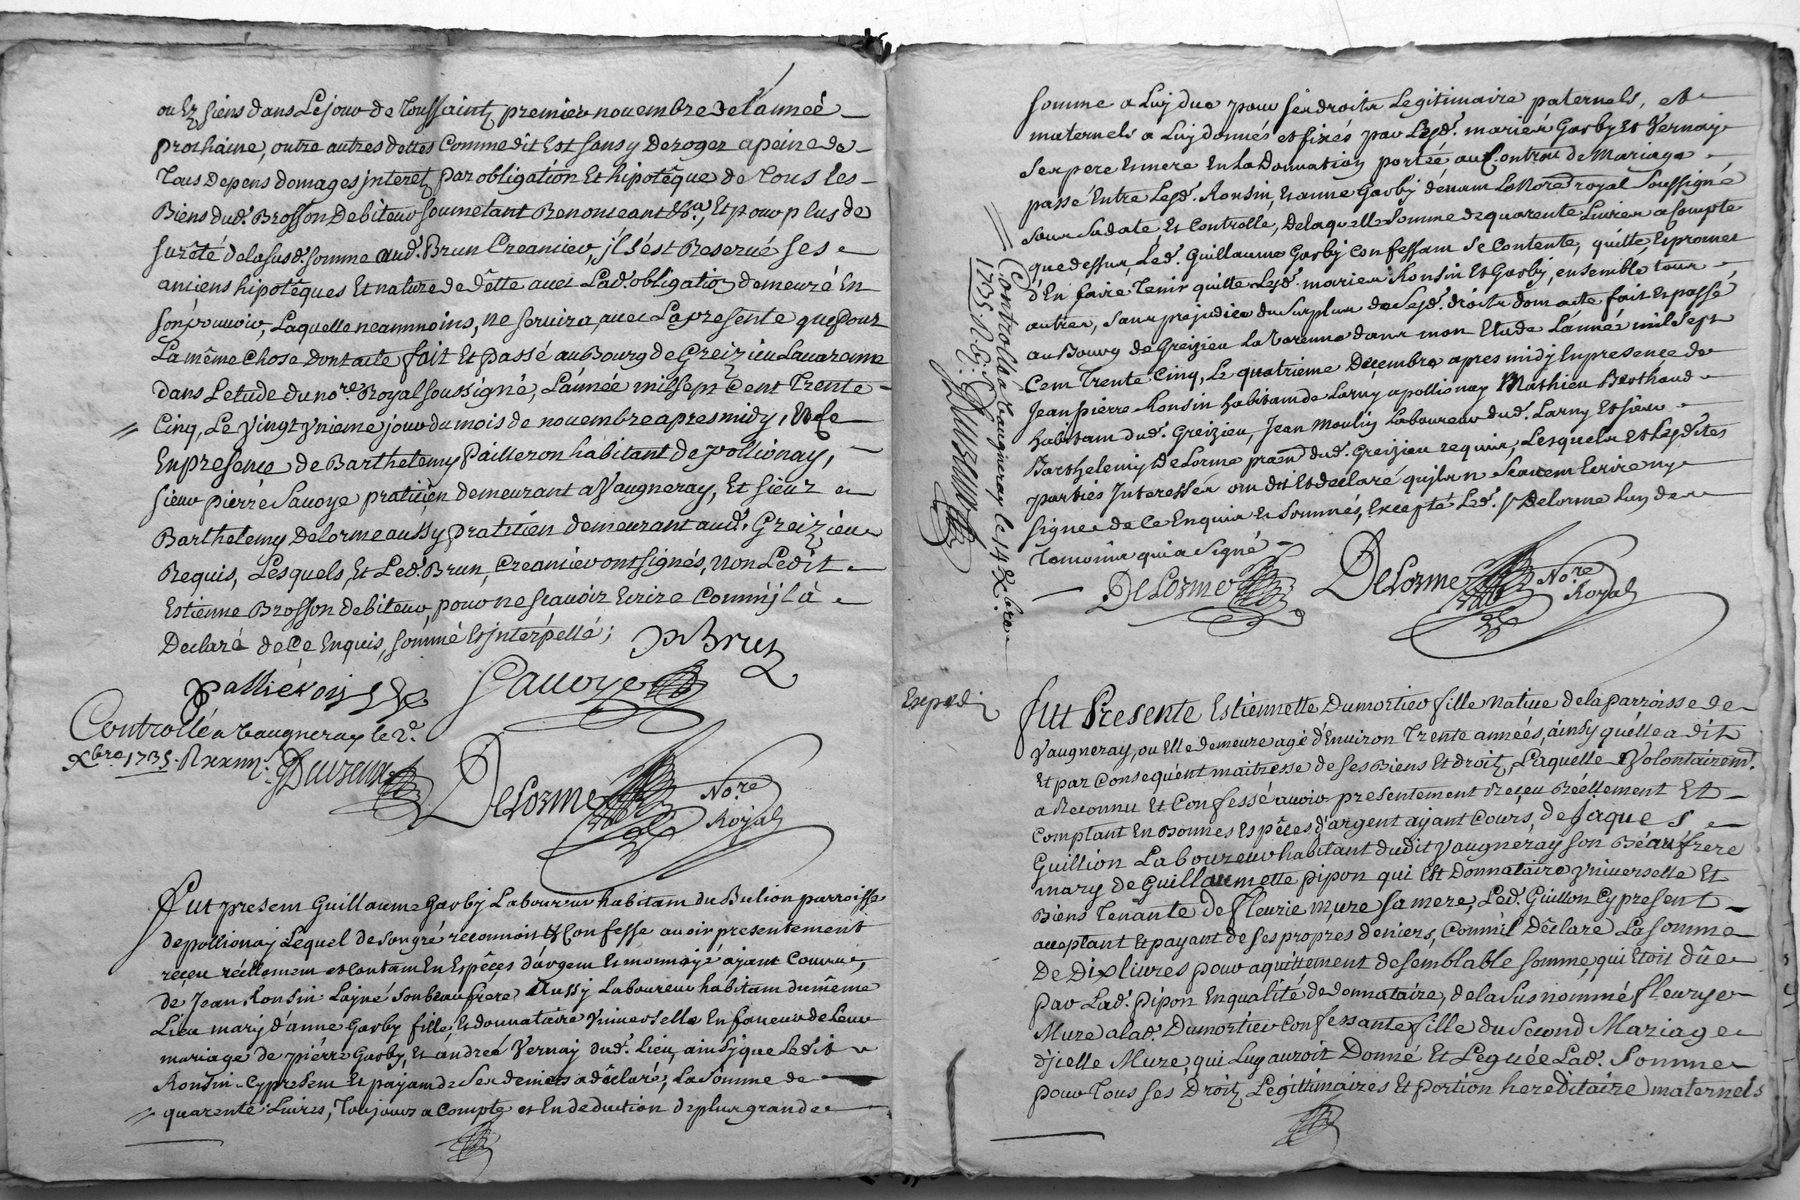 ou Ez siens dans Le jour de Toussaint premier novembre de L'année
prochaine, outre autres dettes Comme dit Est sans y Deroger a peine de
Tous Depens domages jnterets, par obligation Et hipotêque de Tous Les
Biens dud. Brosson Debiteur soumetant Renonceant &a. Et pour plus de
surêté de la susd. somme aud. Brun Creancier, jl s'est Reservé ses
anciens hipotêques Et nature de dêtte avec Lad. obligation demeuré En
son pouvoir, Laquelle neammoins, ne servira avec La presente que pour
La même Chose dont acte fait Et passé au Bourg de Greizieu Lavarenne
dans L'etude du nore. Royal soussigné, L'année mil sept Cent Trente
Cinq, Le vingt ynieme jour du mois de novembre apres midy,
En presence de Barthelemy Pailleron habitant de pollionay,
sieur pierre Savoye praticien demeurant a Vaugneray, Et sieur
Barthelemy Delorme aussy praticien demeurant aud. Greizieu
Requis, Lesquels, Et Led. Brun, Creancier ont signés, Non Ledit
Estienne Brosson debiteur, pour ne scavoir Ecrire Comm'jl à
Declaré de Ce Enquis, sommé Et jnterpellé;
Brun
Savoye
Controllé a Vaugneray le 2e.
Xbre 1735.
Delorme Nore.
Royal
Fut present Guillaume Gorby Laboureur habitant du Bulion parroisse
de pollionay Lequel de son gré reconnoit & Confesse avoir presentement
reçeu réellement et Contant En Espêces d'argent Et monnoyé ayant Cours,
de Jean Ronsin Layné son beau frere, Aussy Laboureur habitant du même
Lieu mary d'anne Gorby fille, Et donnataire Vniverselle En faveur de Leur
mariage de pierre Gorby, Et andreé Vernay dud. Lieu, ainsy que Ledit
Ronsin Cy present Et payant de Ses deniers a déclaré, La somme de
quarente Livres, Toujours a Compte et En deduction de plus grande
somme a Luy due pour ses droits Legitimaire paternels, et
maternels a Luy donnés et fixés par Lesd. mariés Gorby Et Vernay
Ses pere Et mere En La Donnation portée au Contrat de Mariage
passé Entre Lesd. Ronsin, Et anne Gorby devant Le Nore royal Soussigné
sous Sa date Et Controlle, De laquelle Somme de quarente Livres a Compte
que dessus, Led. Guillaume Gorby Confessant Se Contente, quitte, Et promet
d'En faire Tenir quitte Lesd. mariés Ronsin Et Gorby, ensemble tous
autres, sans prejudice du Surplus de Sesd. droits dont acte fait Et passé
au Bourg de Greizieu La Varenne dans mon Etude L'année mil Sept
Cent Trente Cinq, Le quatrieme Decembre apres midy En presence de
Jean pierre Ronsin habitant de Larny apollionay Mathieu Berthaud
habitant dud. Greizieu, Jean Moulin Laboureur dud. Larny Et sieur
Barthelemy De Lorme pran. dud. Greizieu requis, Lesquels Et Lesdites
parties Interessés ont dit Et declaré qu'ils ne Scavent Ecrire ny
signer de Ce Enquis Et Sommés, Excepté Led. Sr Delorme L'un des
Temoins qui a Signé
Delorme
Delorme Nore.
Royal
Controllé a Vaugneray le 14 Xbre
1735.
Exped
Fut Presente Estiennette Dumortier fille Native de la parroisse de
Vaugneray, ou Elle demeure agé d'Environ Trente années, ainsy qu'elle a dit
Et par Consequent maitresse de ses Biens Et droits, Laquelle Volontairemt.
a Reconnu Et Confessé avoir presentement Reçeu Réellement Et
Comptant En Bonnes Espêces d'argent ayant Cours, de Jaques
Guillion Laboureur habitant dudit Vaugneray son Béaufrere
mary de Guillaumette Pipon qui Est Donnataire Vniverselle Et
Biens Tenante de fleurie mure sa mere, Led. Guillon Cy present
acceptant Et payant de ses propres deniers, Comm'il Dêclare La somme
De Dix livres pour aquittement de semblable somme, qui Etoit dûe
par Lad. Pipon En qualité de donnataire, de la sus nommé fleurye
Mure a Lad. Dumortier Confessante fille du Second Mariage
d'jcelle Mure, qui Luy auroit Donné Et Leguée Lad. Somme
pour Tous ses Droits Légittimaires Et portion hereditaire maternels